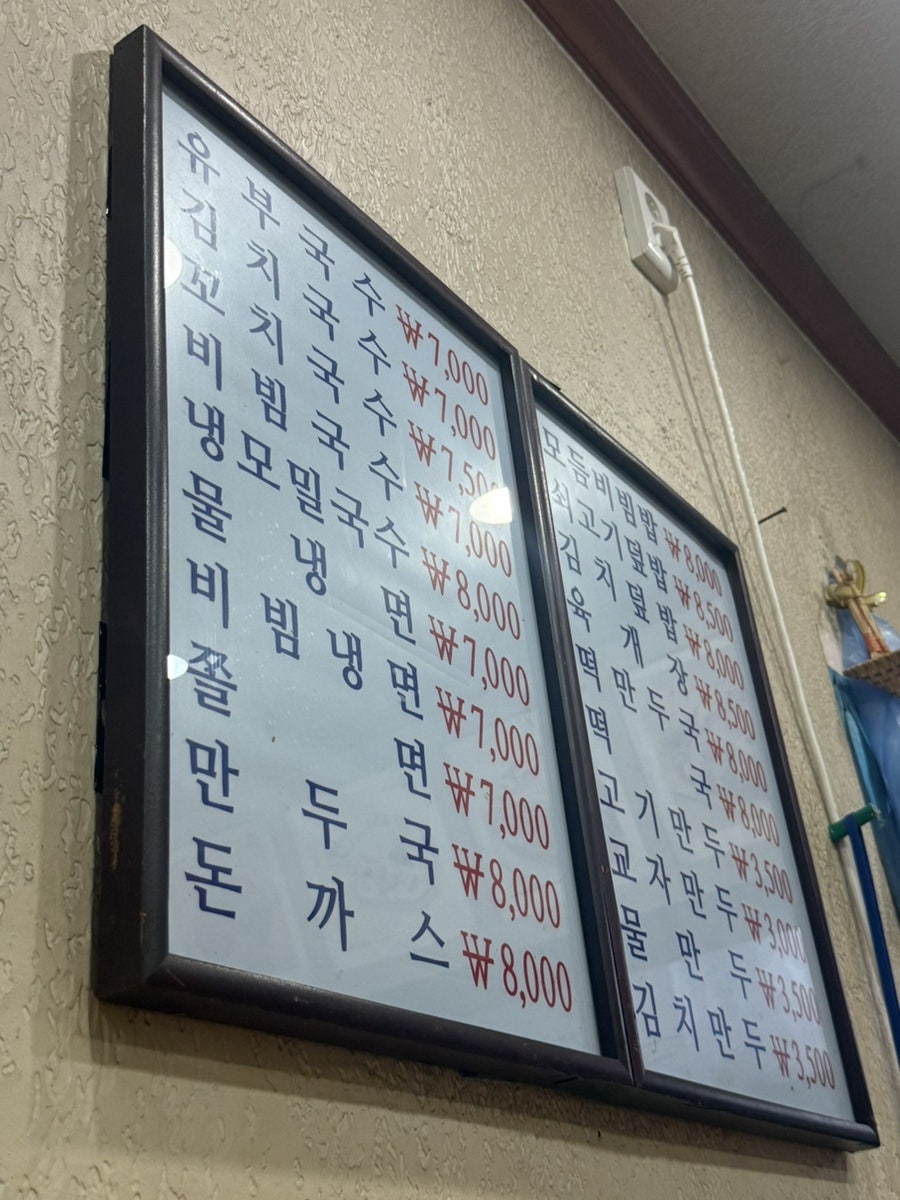 유부국수 ₩7,000
김치국수 ₩7,000
꼬치국수 ₩7,500
비빔국수 ₩7,000
냉모밀국수 ₩8,000
물냉면 ₩7,000
비빔냉면 ₩7,000
쫄면 ₩7,000
만두국 ₩8,000
돈까스 ₩8,000
모듬비빔밥 ₩8,000
쇠고기덮밥 ₩8,500
김치덮밥 ₩8,000
육개장 ₩8,500
떡만두국 ₩8,000
떡국 ₩8,000
고기만두 ₩3,500
교자만두 ₩3,000
물만두 ₩3,500
김치만두 ₩3,500